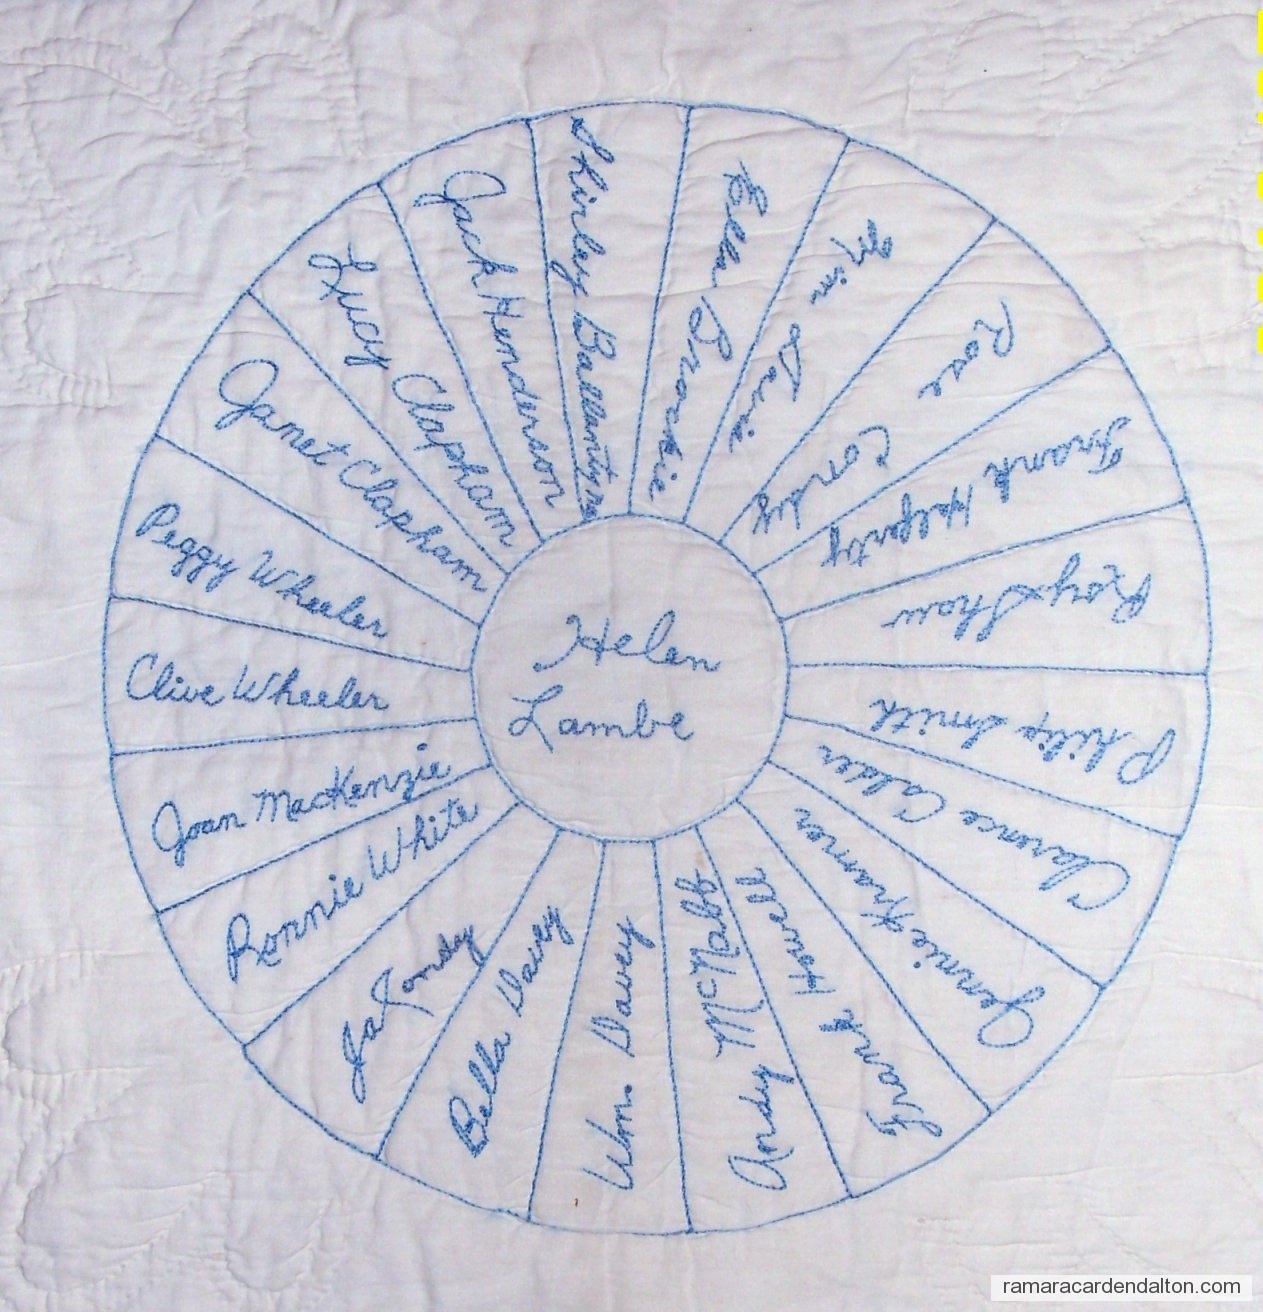 Helen
Lambe
Shirley Ballantyne
Ella Brockie
Mim Lavie
Rose Conley
Frank Halferty
Roy Shaw
Philip Smith
Clarence Calder
Jennie Kramer
Frank Howell
Andy
Wm. Davey
Bella Davey
Ja
Ronnie White
Joan MacKenzie
Clive Wheeler
Peggy Wheeler
Janet Clapham
Lucy Clapham
Jack Henderson
ramaracardendalton.com